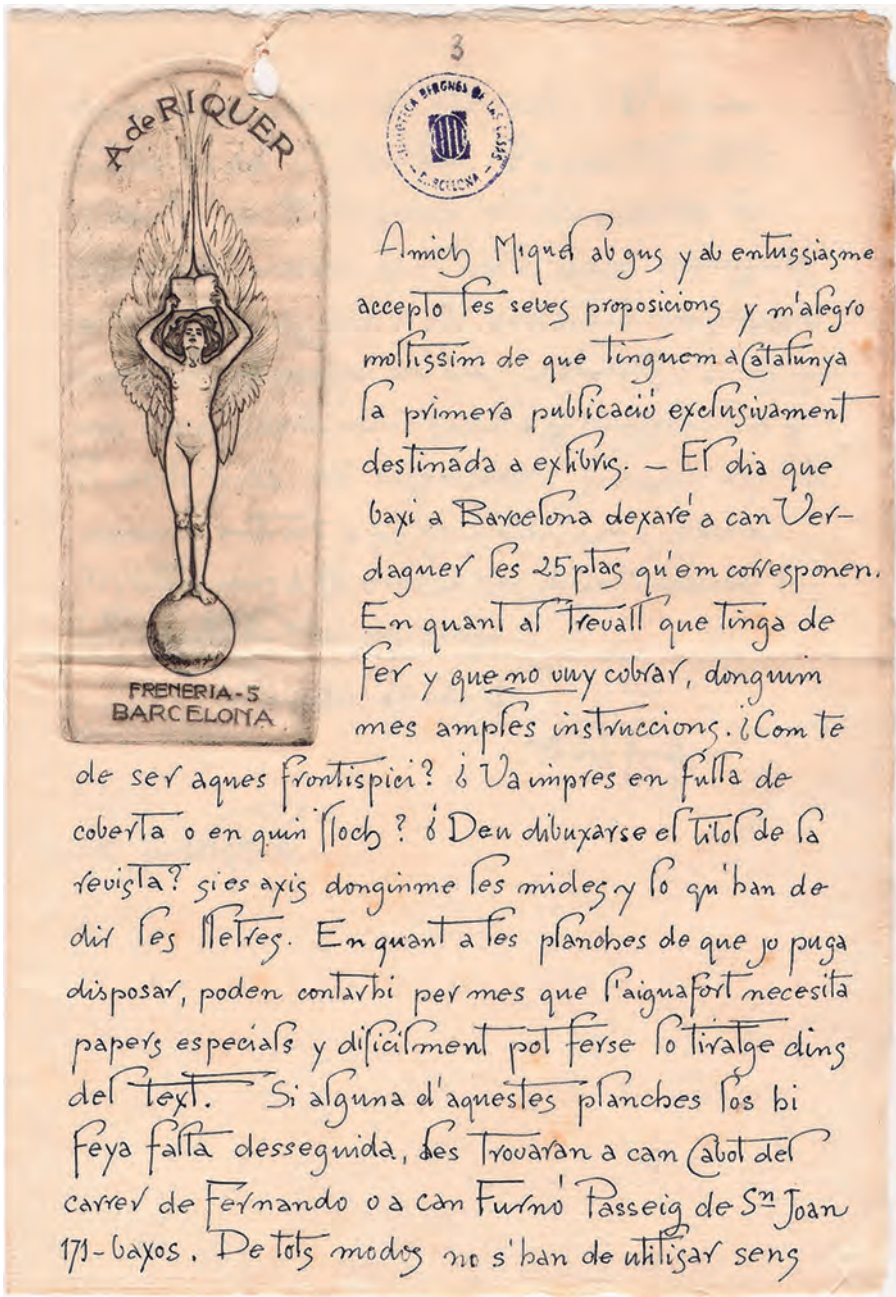 3
A de RIQUER
BIBLIOTECA BERGNES DE LAS CASAS
BARCELONA
Amich Miquel ab gus y ab entussiasme
accepto les seves proposicions y m'alegro
moltissim de que tinguem a Catalunya
la primera publicació exclusivament
destinada a exlibris. — El dia que
baxi a Barcelona dexaré a can Ver-
daguer les 25 ptas qu'em corresponen.
En quant al trevall que tinga de
fer y que no vuy cobrar, donguim
mes amples instruccions. ¿Com te
de ser aques frontispici? ¿Va impres en fulla de
coberta o en quin lloch? ¿Deu dibuxarse el titol de la
revista? si es axis donguinme les mides y lo qu'han de
dir les lletres. En quant a les planches de que jo puga
disposar, poden contarhi per mes que l'aiguafort necesita
papers especials y dificilment pot ferse lo tiratge dins
del text. Si alguna d'aquestes planches los hi
feya falta desseguida, les trovaran a can Cabot del
carrer de Fernando o a can Furnó Passeig de Sn Joan
171-baxos. De tots modos no s'han de utilisar sens
FRENERIA-5
BARCELONA